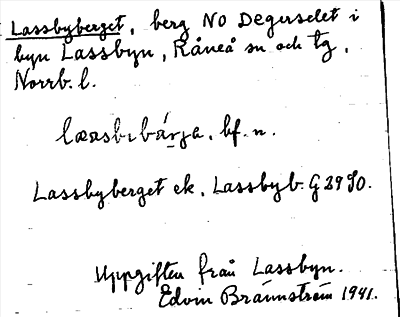 Lassbyberget, berg NO Degerselet i
byn Lassbyn, Råneå sn och tg,
Norrb. l.
bf. n.
Lassbyberget ek. Lassbyb. G 29 SO.
Uppgiften från Lassbyn.
Edvin Brännström 1941.